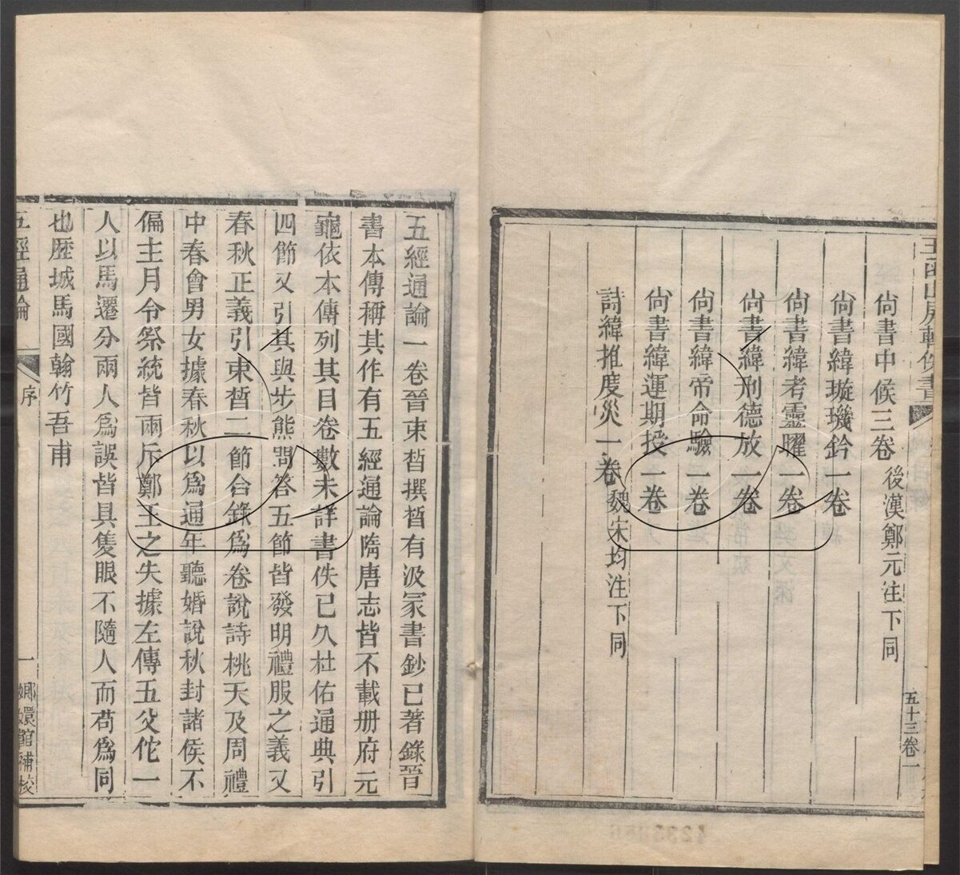 玉函山房輯佚書
五十三卷一
尙書中候三卷 後漢鄭元注下同
尙書緯璇璣鈐一卷
尙書緯考靈曜一卷
尙書緯刑德放一卷
尙書緯帝命驗一卷
尙書緯運期授一卷
詩緯推度災一卷 魏宋均注下同
五經通論一卷晉束晳撰晳有汲冢書鈔已著錄晉
書本傳稱其作有五經通論隋唐志皆不載册府元
龜依本傳列其目卷數未詳書佚已久杜佑通典引
四節又引其與步熊問答五節皆發明禮服之義又
春秋正義引束晳二節合錄爲卷說詩桃夭及周禮
中春會男女據春秋以爲通年聽婚說秋封諸侯不
偏主月令祭統皆兩斥鄭王之失據左傳五父佗一
人以馬遷分兩人爲誤皆具隻眼不隨人而苟爲同
也歷城馬國翰竹吾甫
五經通論
序
一
嫏嬛館補校